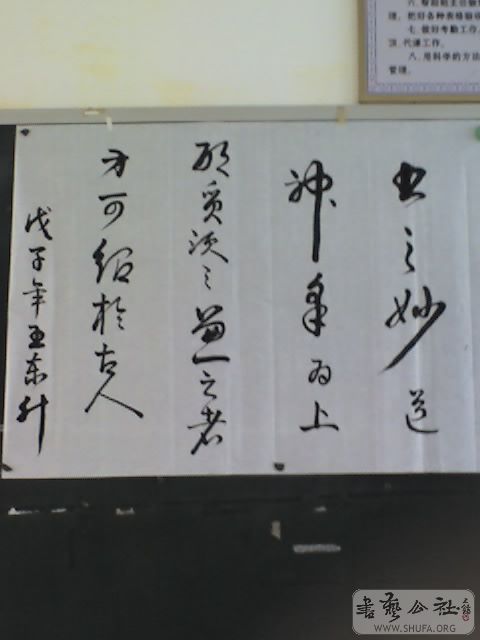 书之妙道
神采为上
形质次之兼之者
方可绍於古人
戊子年王东升
理。把好各种表格验收
七、做好考勤工作
代课工作。
八、用科学的方法
管理。
书艺公社
WWW.SHUFA.ORG